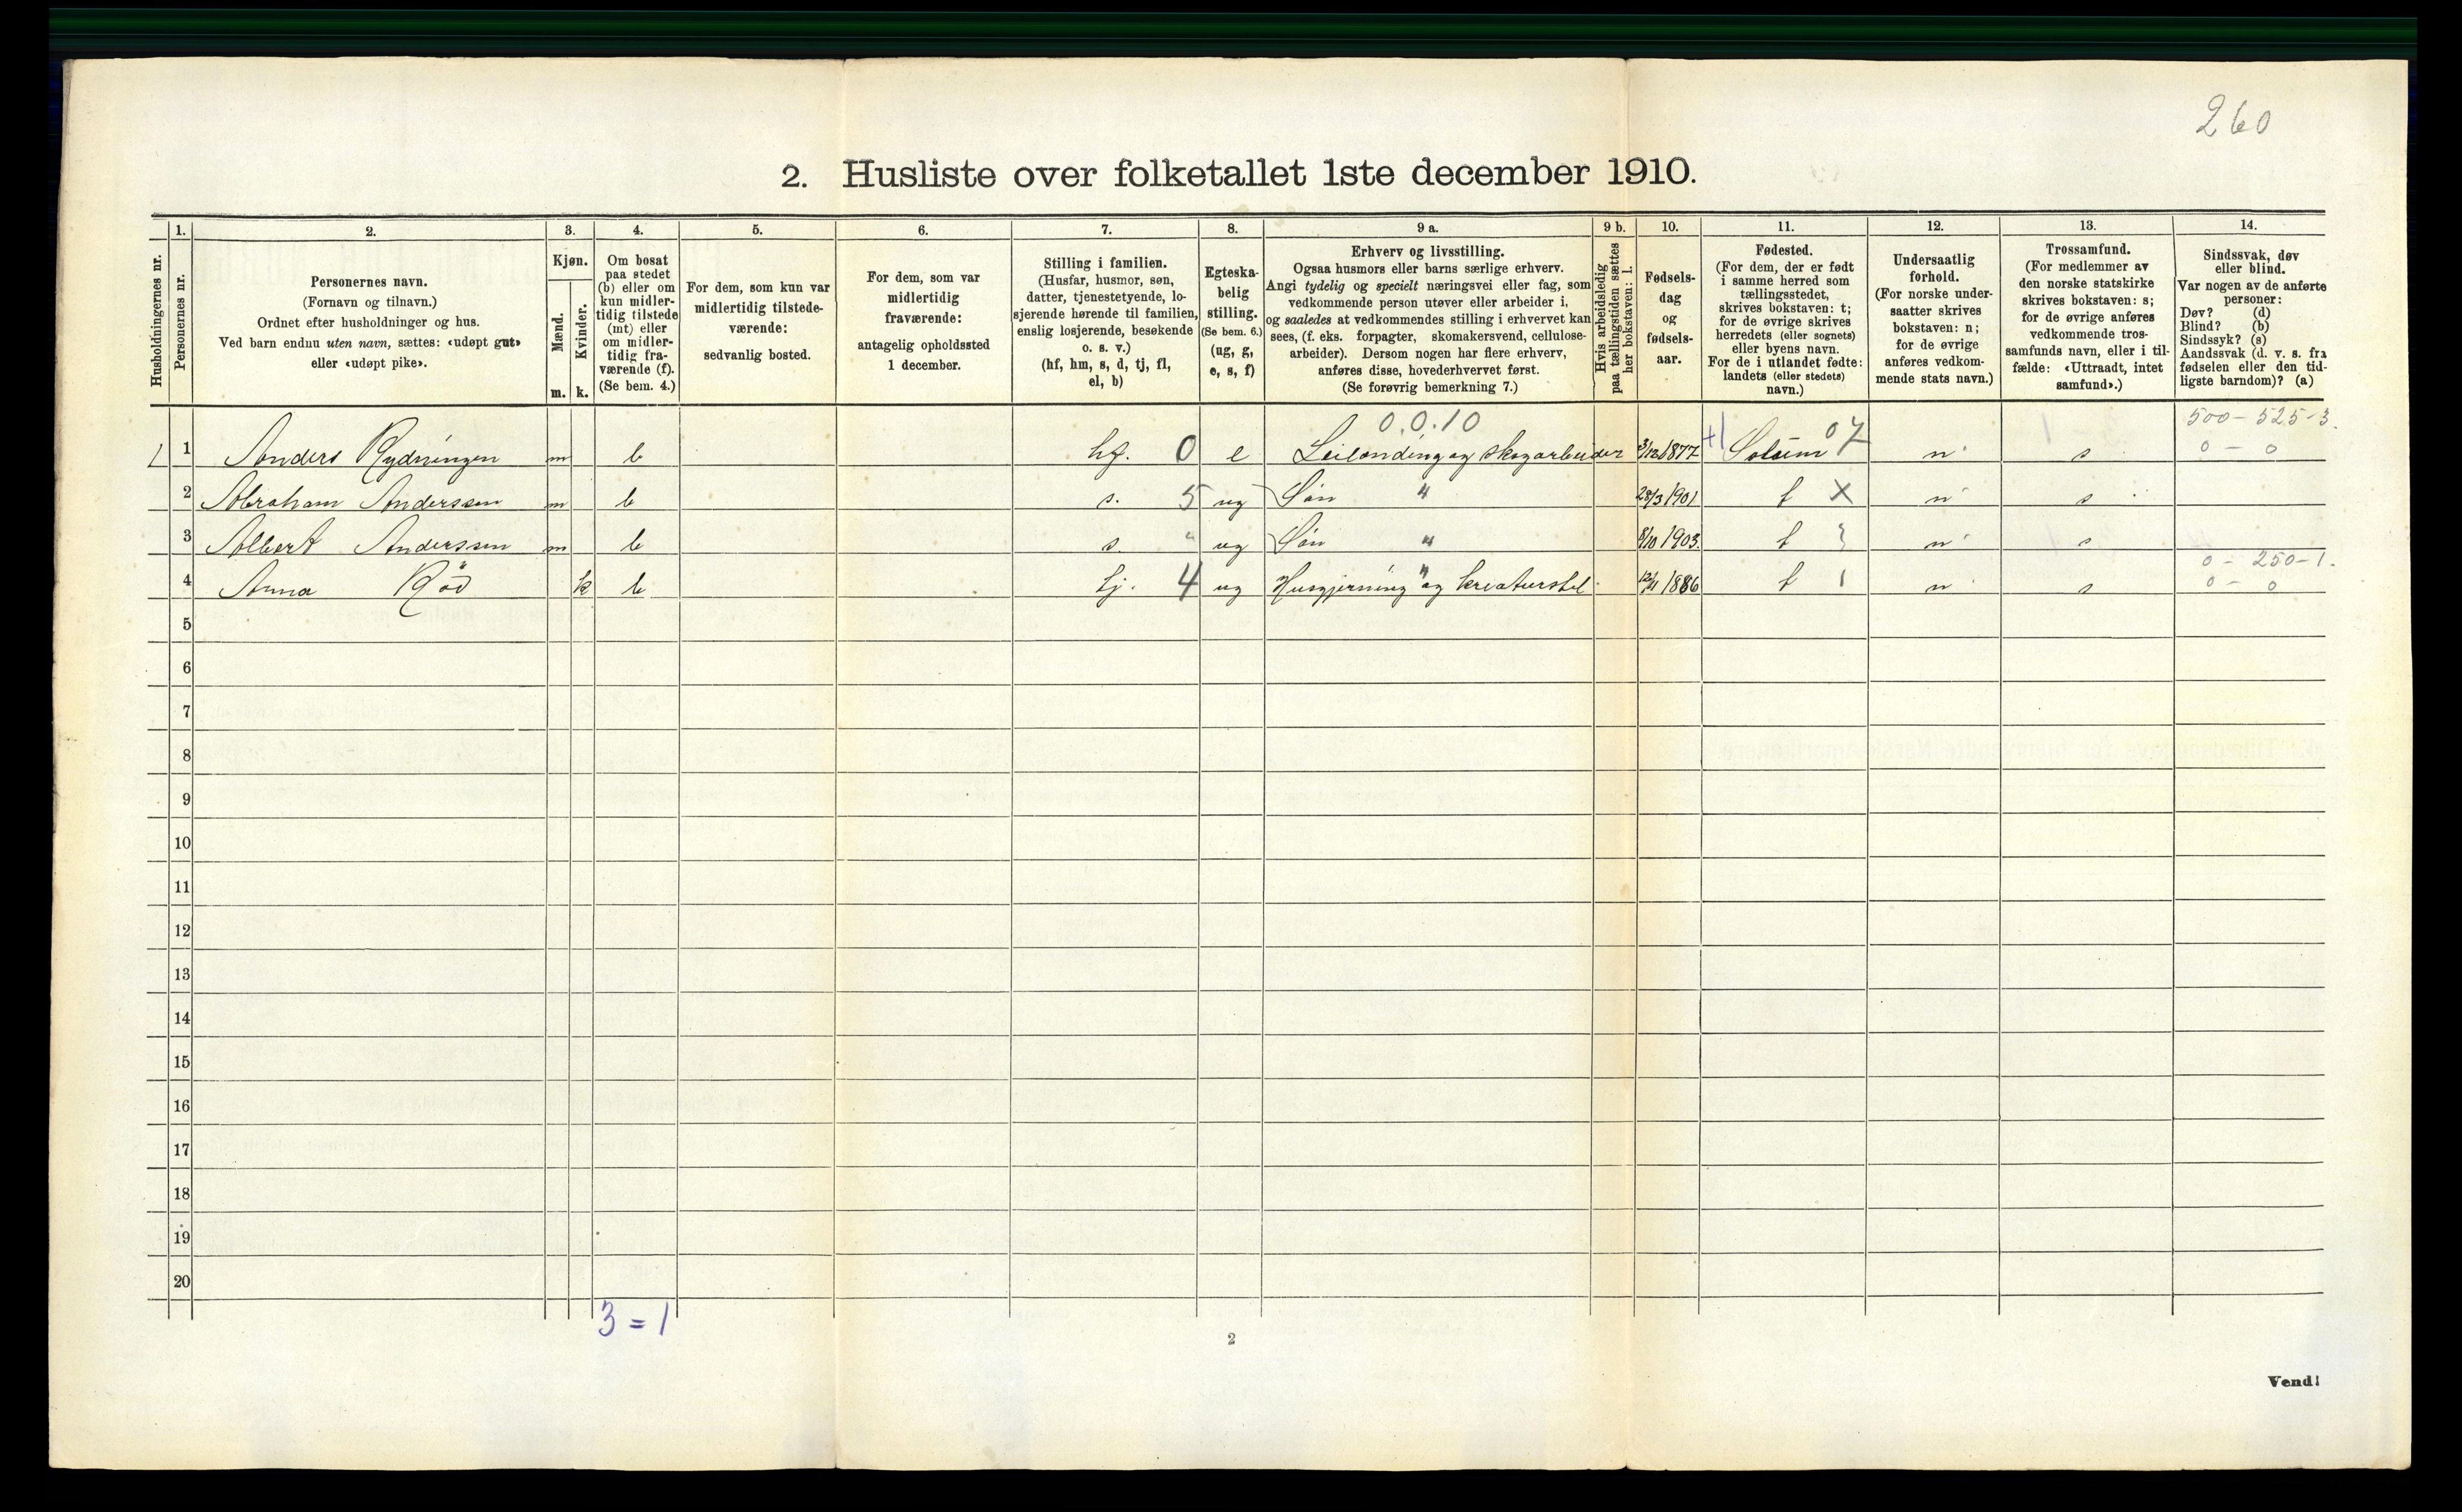 260
2. Husliste over folketallet 1ste december 1910.
Husholdningernes nr.
1.
Personernes nr.
2.
Personernes navn.
(Fornavn og tilnavn.)
Ordnet efter husholdninger og hus.
Ved barn endnu uten navn, sættes: «udøpt gut»
eller «udøpt pike».
3.
Kjøn.
Mænd.
Kvinder.
m. k.
4.
Om bosat
paa stedet
(b) eller om
kun midler-
tidig tilstede
(mt) eller
om midler-
tidig fra-
værende (f).
(Se bem. 4.)
5.
For dem, som kun var
midlertidig tilstede-
værende:
sedvanlig bosted.
6.
For dem, som var
midlertidig
fraværende:
antagelig opholdssted
1 december.
7.
Stilling i familien.
(Husfar, husmor, søn,
datter, tjenestetyende, lo-
sjerende hørende til familien,
enslig losjerende, besøkende
o. s. v.)
(hf, hm, s, d, tj, fl,
el, b)
8.
Egteska-
belig
stilling.
(Se bem. 6.)
(ug, g,
e, s, f)
9 a.
Erhverv og livsstilling.
Ogsaa husmors eller barns særlige erhverv.
Angi tydelig og specielt næringsvei eller fag, som
vedkommende person utøver eller arbeider i,
og saaledes at vedkommendes stilling i erhvervet kan
sees, (f. eks. forpagter, skomakersvend, cellulose-
arbeider). Dersom nogen har flere erhverv,
anføres disse, hovederhvervet først.
(Se forøvrig bemerkning 7.)
9 b.
Hvis arbeidsledig
paa tællingstiden sættes
her bokstaven: l.
10.
Fødsels-
dag
og
fødsels-
aar.
11.
Fødested.
(For dem, der er født
i samme herred som
tællingsstedet,
skrives bokstaven: t;
for de øvrige skrives
herredets (eller sognets)
eller byens navn.
For de i utlandet fødte:
landets (eller stedets)
navn.)
12.
Undersaatlig
forhold.
(For norske under-
saatter skrives
bokstaven: n;
for de øvrige
anføres vedkom-
mende stats navn.)
13.
Trossamfund.
(For medlemmer av
den norske statskirke
skrives bokstaven: s;
for de øvrige anføres
vedkommende tros-
samfunds navn, eller i til-
fælde: «Uttraadt, intet
samfund».)
14.
Sindssvak, døv
eller blind.
Var nogen av de anførte
personer:
Døv? (d)
Blind? (b)
Sindssyk? (s)
Aandssvak (d. v. s. fra
fødselen eller den tid-
ligste barndom)? (a)
0.0.10 500 - 525-3.
1 1 Anders Rydningen m b hf. 0 e Leilending og skogarbeider 3/12 1877 +1 Solum 07 n s 0 - 0
2 Abraham Anderssen m b s. 5 ug Søn " 28/3 1901 t X n s
3 Albert Anderssen m b s. " ug Søn " 8/10 1903. t } n s
0 - 250-1.
4 Anna Röd k b tj. 4 ug Husgjerning og kreaturstel 12/11 1886 t 1 n s 0 - 0
5
6
7
8
9
10
11
12
13
14
15
16
17
18
19
20
3 = 1
2
Vend!